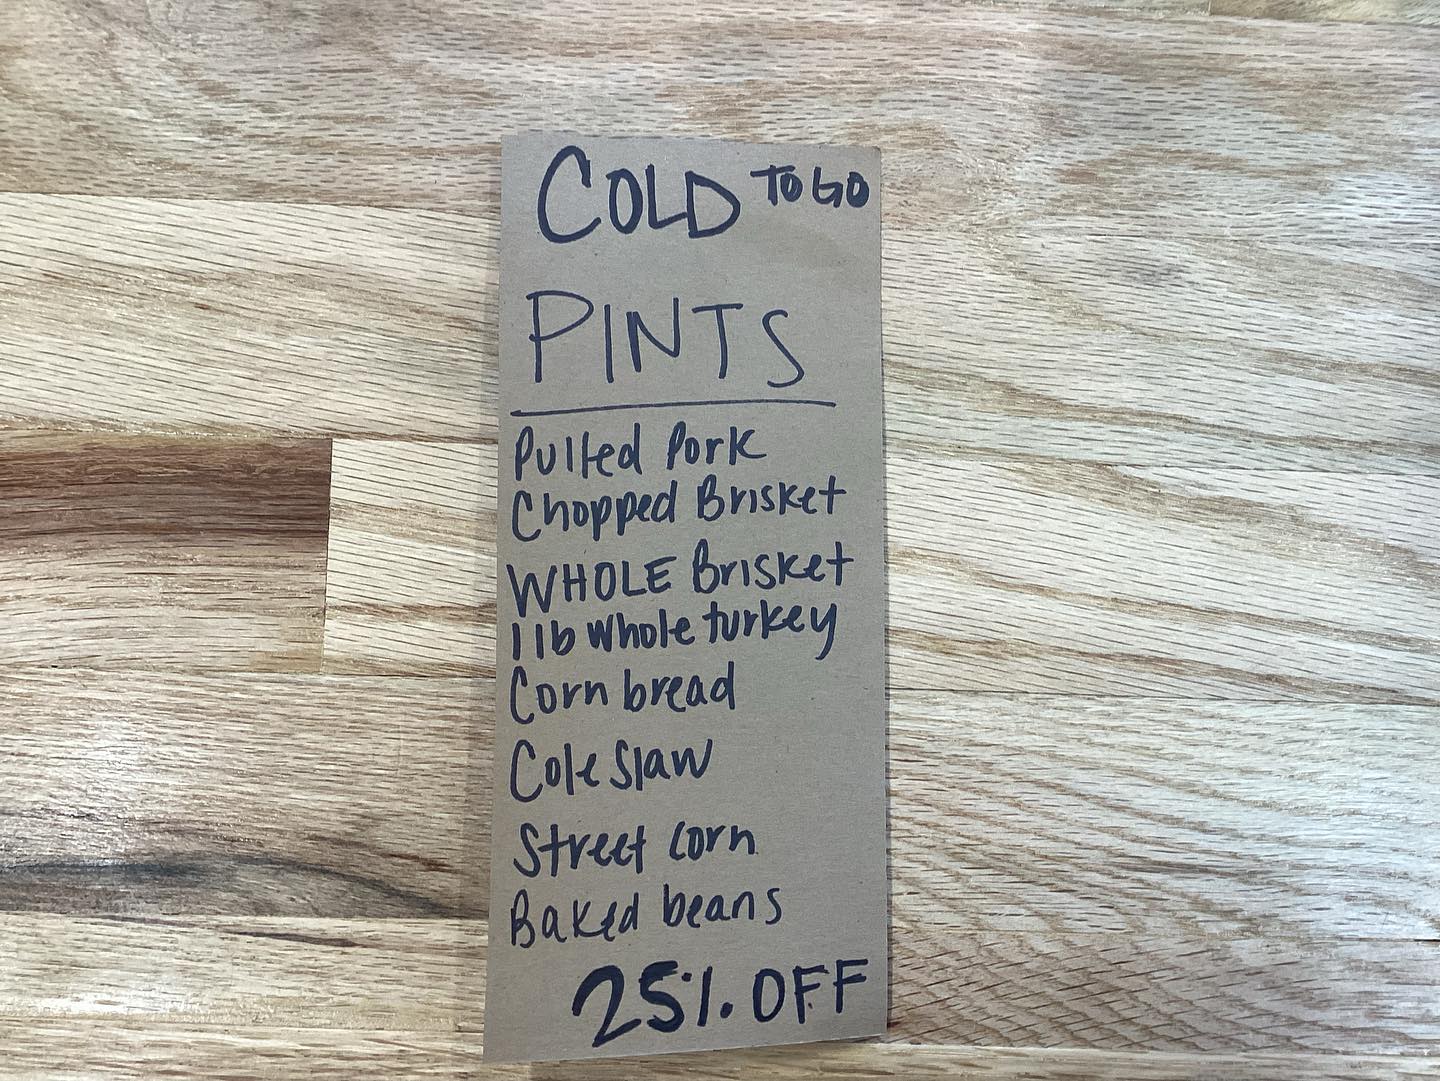 COLD TO GO
PINTS
Pulled Pork
Chopped Brisket
WHOLE Brisket
1 lb whole turkey
Corn bread
Cole Slaw
Street corn
Baked beans
25% OFF